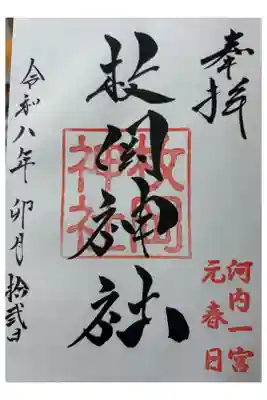 奉拝
河内一宮
元春日
枚岡神社
枚岡
神社
令和八年卯月拾弐日